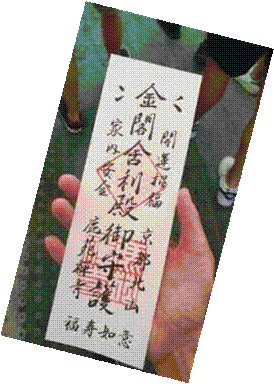 開運招福
京都北山
金閣舎利殿御守護
家内安全
鹿苑禅寺
如意
福寿